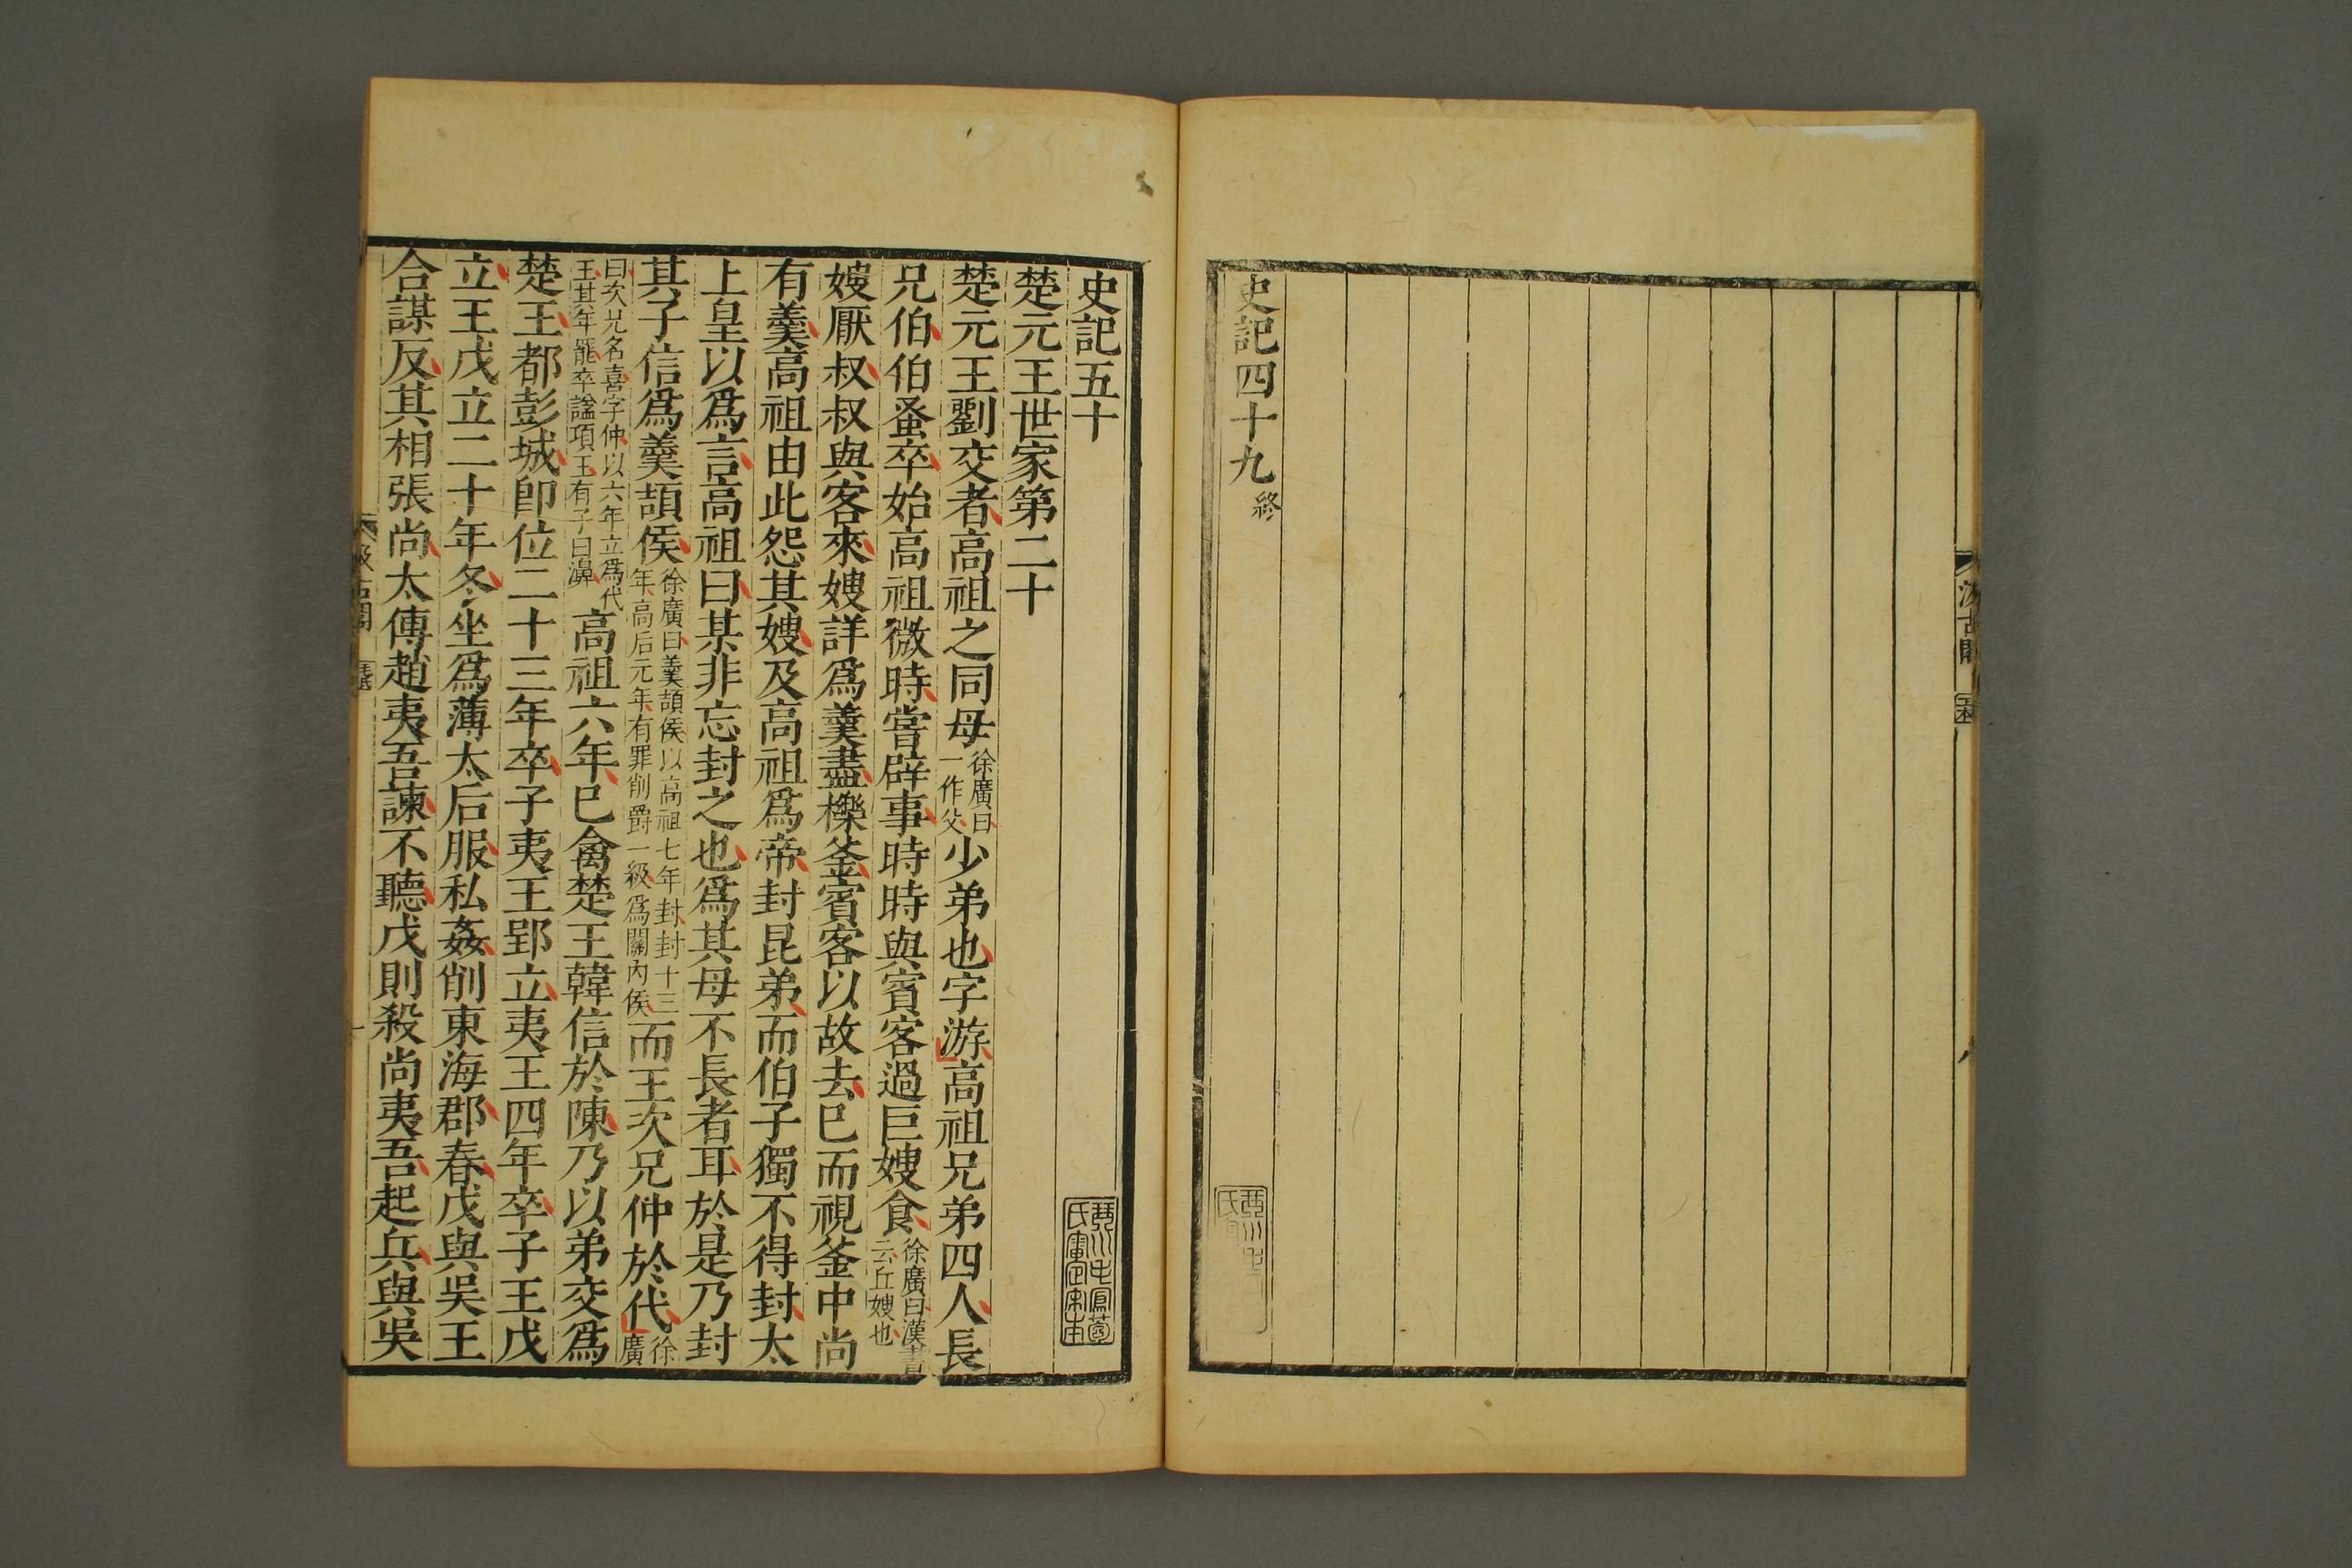 史記四十九終
汲古閣
史記五十
琴川毛鳳苞氏審定宋本
楚元王世家第二十
楚元王劉交者高祖之同母徐廣曰一作父少弟也字游高祖兄弟四人長
兄伯伯蚤卒始高祖微時嘗辟事時時與賓客過巨嫂食徐廣曰漢書云丘嫂也
嫂厭叔叔與客來嫂詳爲羹盡櫟釜賓客以故去已而視釜中尚
有羹高祖由此怨其嫂及高祖爲帝封昆弟而伯子獨不得封太
上皇以爲言高祖曰某非忘封之也爲其母不長者耳於是乃封
其子信爲羹頡侯徐廣曰羹頡侯以高祖七年封封十三年高后元年有罪削爵一級爲關內侯而王次兄仲於代徐廣
曰次兄名喜字仲以六年立爲代王其年罷卒諡項王有子曰濞高祖六年已禽楚王韓信於陳乃以弟交爲
楚王都彭城卽位二十三年卒子夷王郢立夷王四年卒子王戊
立王戊立二十年冬坐爲薄太后服私姦削東海郡春戊與吳王
合謀反其相張尚太傅趙夷吾諫不聽戊則殺尚夷吾起兵與吳
汲古閣